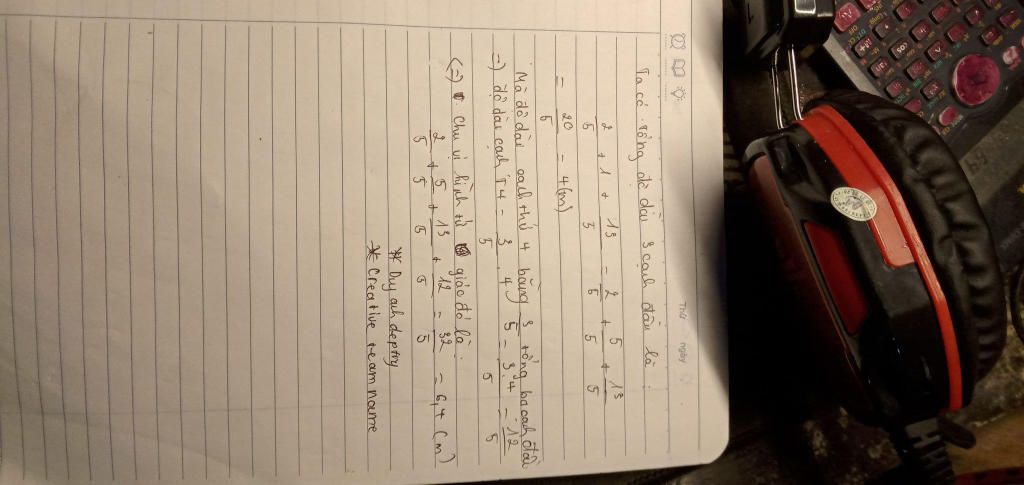 Thứ ngày
Ta có. Tổng độ dài 3 cạnh đầu là:
2/5 + 1 + 13/5 = 2/5 + 5/5 + 13/5
= 20/5 = 4(m)
Mà độ dài cạnh thứ 4 bằng 3/5 tổng ba cạnh đầu
=) độ dài cạnh T4 = 3/5 . 4 = 3.4/5 = 12/5
(=) Chu vi hình tứ giác đó là:
2/5 + 5/5 + 13/5 + 12/5 = 32/5 = 6,4 (m)
* Duy anh deptry
* Creative team name